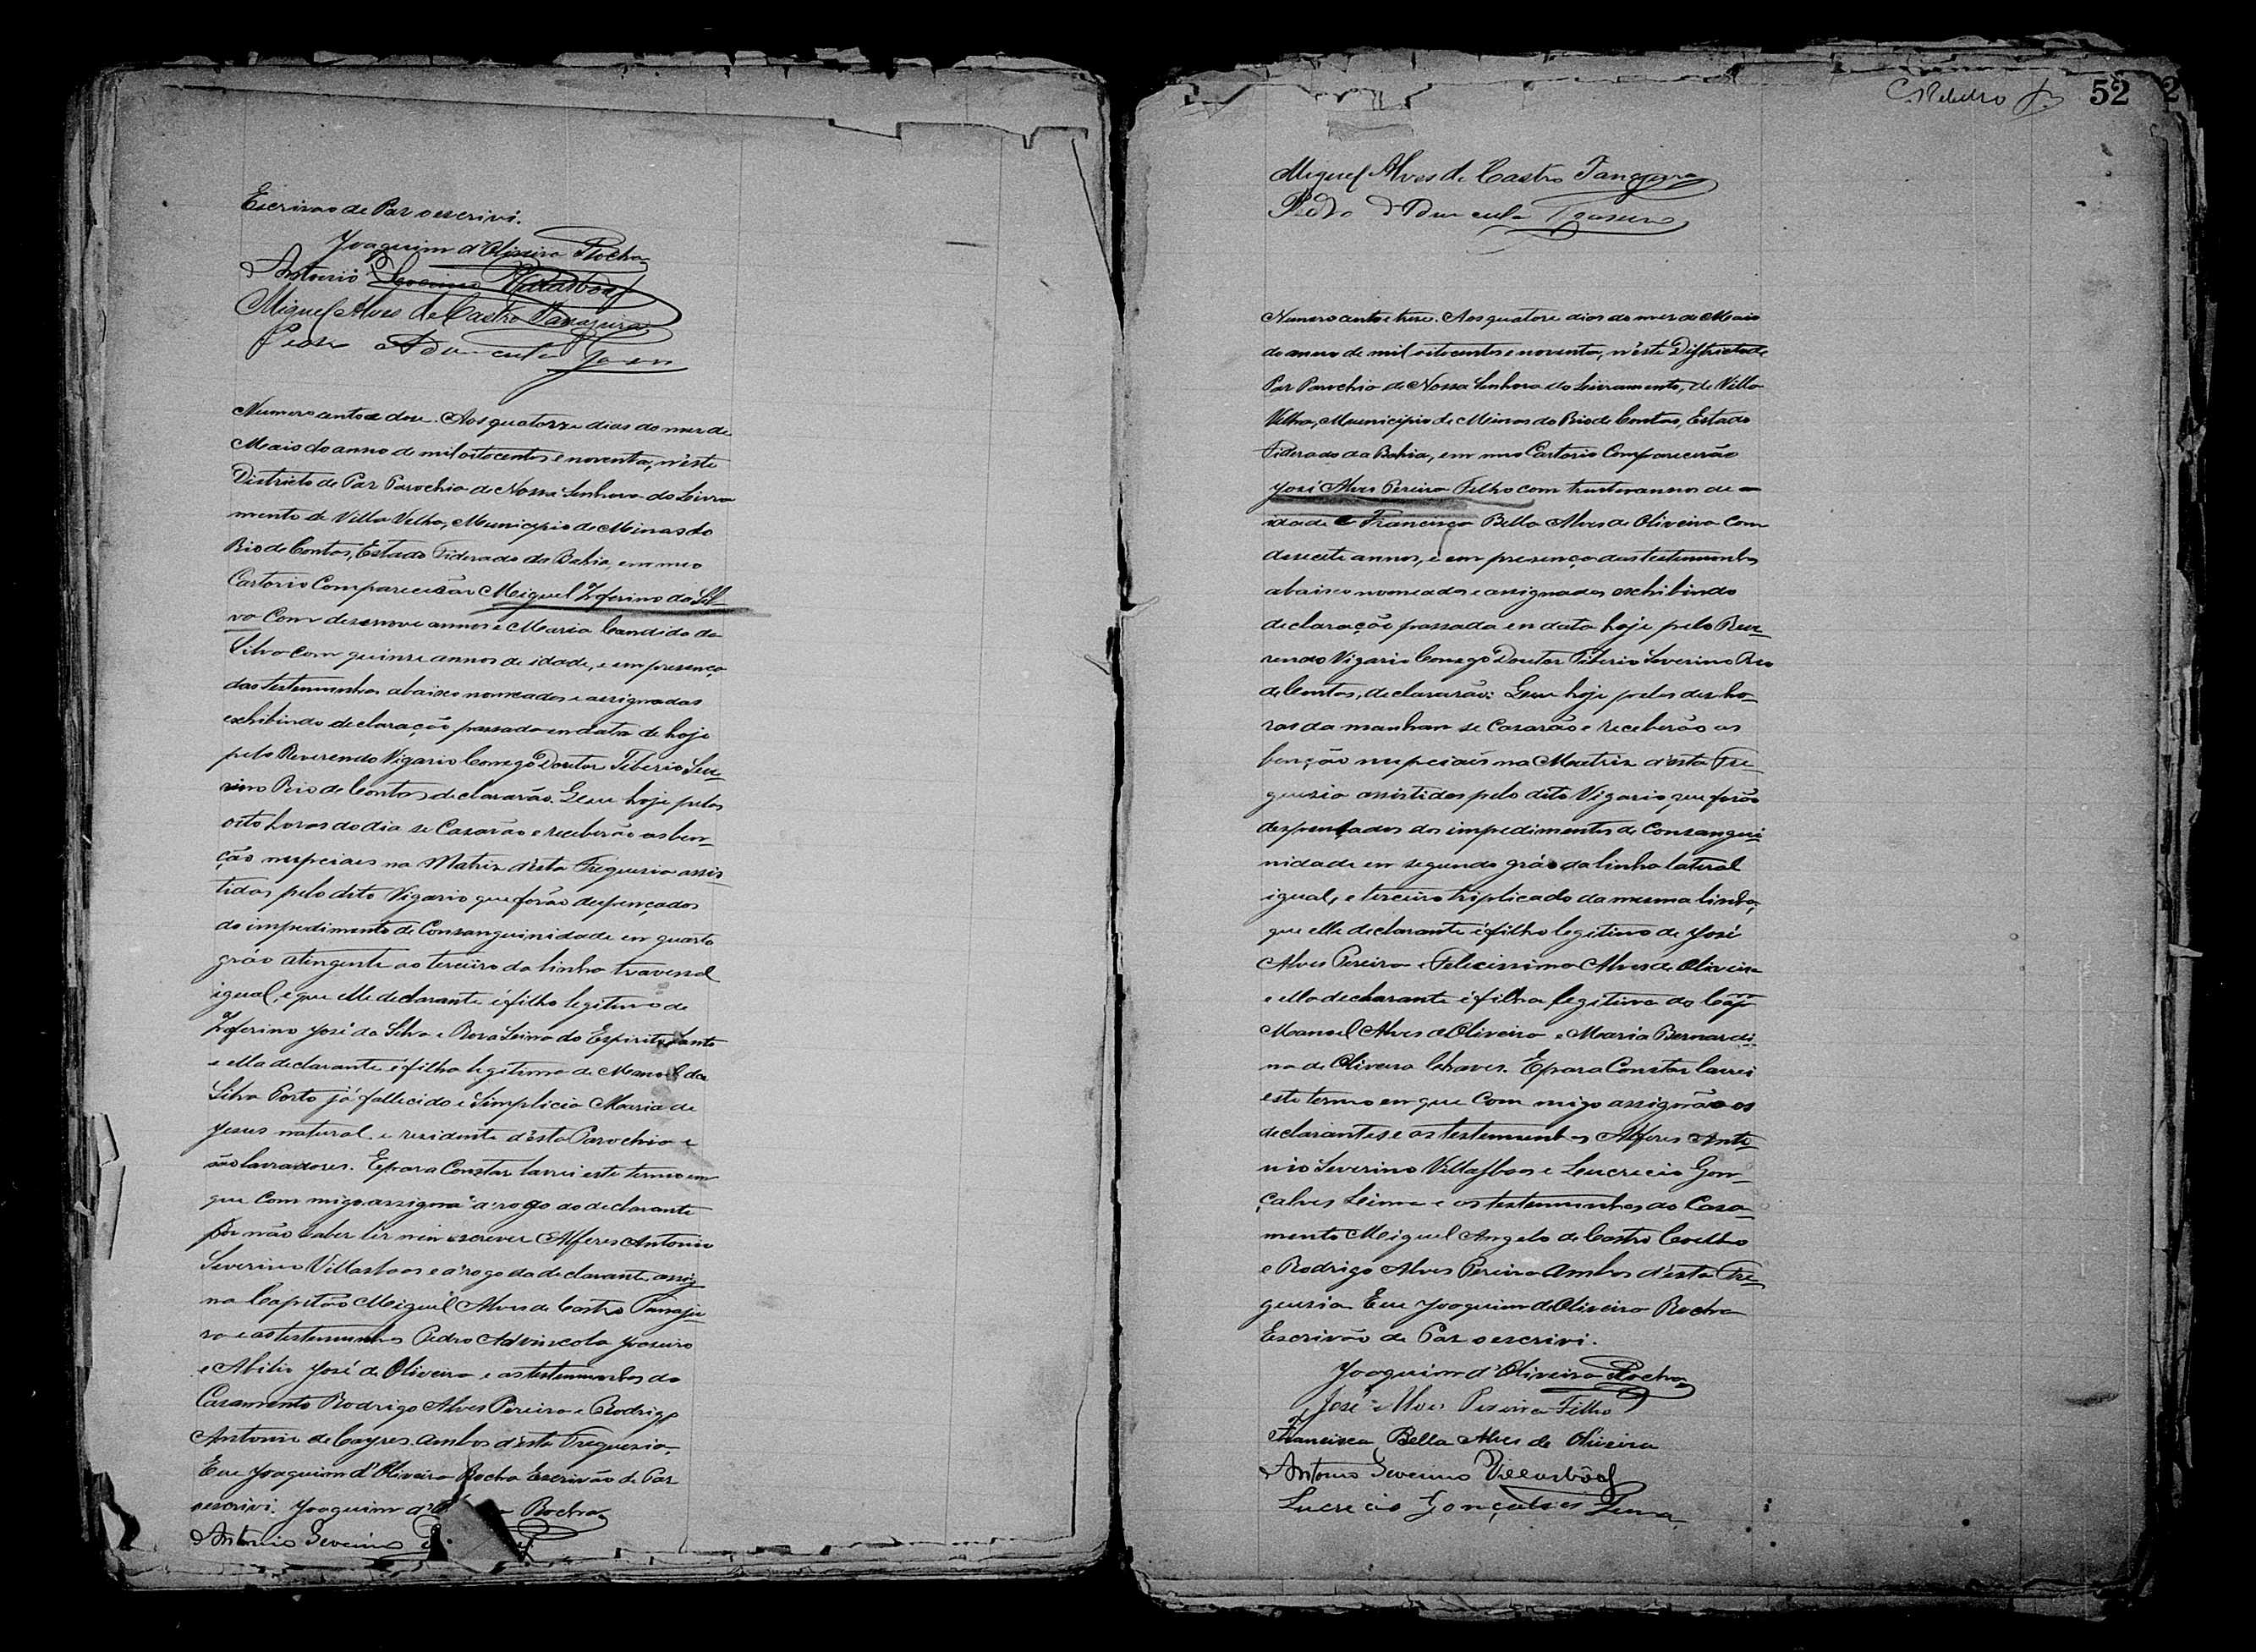 Escrivão de Paz o escrivi.
Joaquim d'Oliveira Rocha
Antonio Severino Villasbôas
Miguel Alves de Castro Tanajura
Pedro Advincula
Numero cento e doze. Aos quatorze dias do mez de
Maio do anno de mil oitocentos e noventa, n'este
Districto de Paz Parochia de Nossa Senhora do Livra
mento de Villa Velha, Municipio de Minas do
Rio de Contas, Estado Federado da Bahia, em meo
Cartorio Comparecerão Miguel Zeferino da Sil-
va Com desenove annos e Maria Candida da
Silva com quinze annos de idade, e em presença
das testemunhas abaixo nomeadas e assignadas
exhibindo declaração passada em data de hoje
pelo Reverendo Vigario Conego Doutor Tiberio Seve-
rino Rio de Contas declararão. Que hoje pelas
oito horas do dia se Casarão e receberão as ben-
ção nupciaes na Matriz d'esta Freguesia assis
tidos pelo dito Vigario que forão despençados
do impedimento de Consanguinidade em quarto
gráo atingente ao terceiro da linha travessal
igual, e que elle declarante é filho legitimo de
Zeferino José da Silva e Rosa Lima do Espirito Santo
e ella declarante é filha legitima de Manoel da
Silva Porto já fallecido e Simplicia Maria de
Jesus natural e residente d'esta Parochia e
são lavradores. E para Constar lavrei este termo em
que Com migo assigna a rogo do declarante
por não saber lêr nem escrever Alferes Antonio
Severino Villasboas e a rogo da declarante assig
na Capitão Miguel Alves de Castro Tanaju
ra e as testemunhas Pedro Advincula
e Abilio José de Oliveira e as testemunhas do
Casamento Rodrigo Alves Pereira e Rodrigo
Antonio de Cayres ambos d'esta Freguesia.
Eu Joaquim d'Oliveira Rocha Escrivão de Paz
o escrivi. Joaquim d' Rocha
Antonio Severino
52
Miguel Alves de Castro Tanajura
Pedro Advincula
Numero cento e treze. Aos quatorze dias do mez de Maio
do anno de mil oitocentos e noventa, n'este Districto de
Paz Parochia de Nossa Senhora do Livramento, de Villa
Velha, Municipio de Minas do Rio de Contas, Estado
Federado da Bahia, em meo Cartorio Comparecerão
José Alves Pereira Filho com annos de
idade e Francisca Bella Alves de Oliveira com
desesete annos, e em presença das testemunhas
abaixo nomeadas e assignadas exhibindo
declaração passada em data hoje pelo Reve-
rendo Vigario Conego Doutor Tiberio Severino Rio
de Contas, declararão: Que hoje pelas dez ho-
ras da manham se Casarão e receberão as
benção nupciaes na Matriz d'esta Fre-
guesia assistidos pelo dito Vigario que forão
despençados dos impedimentos de Consangui
nidade em segundo gráo da linha lateral
igual, e terceiro triplicado da mesma linha,
que elle declarante é filho legitimo de José
Alves Pereira e Felicissima Alves de Oliveira
e ella declarante é filha legitima do Capᵐ
Manoel Alves d'Oliveira e Maria Bernardi-
na de Oliveira Chaves. E para Constar lavrei
este termo em que Com migo assignão os
declarantes e as testemunhas Alferes Anto
nio Severino Villasboas e Lucrecio Gon-
çalves Lima e as testemunhas do Casa-
mento Miguel Angelo de Castro Coelho
e Rodrigo Alves Pereira ambos d'esta Fre-
guesia Eu Joaquim d'Oliveira Rocha
Escrivão de Paz o escrivi.
Joaquim d'Oliveira Rocha
José Alves Pereira Filho
Francisca Bella Alves de Oliveira
Antonio Severino Villasbôas
Lucrecio Gonçalves Lima